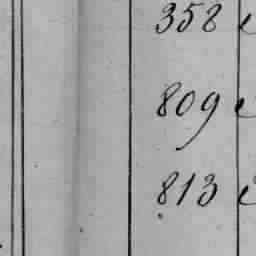 358
809
813